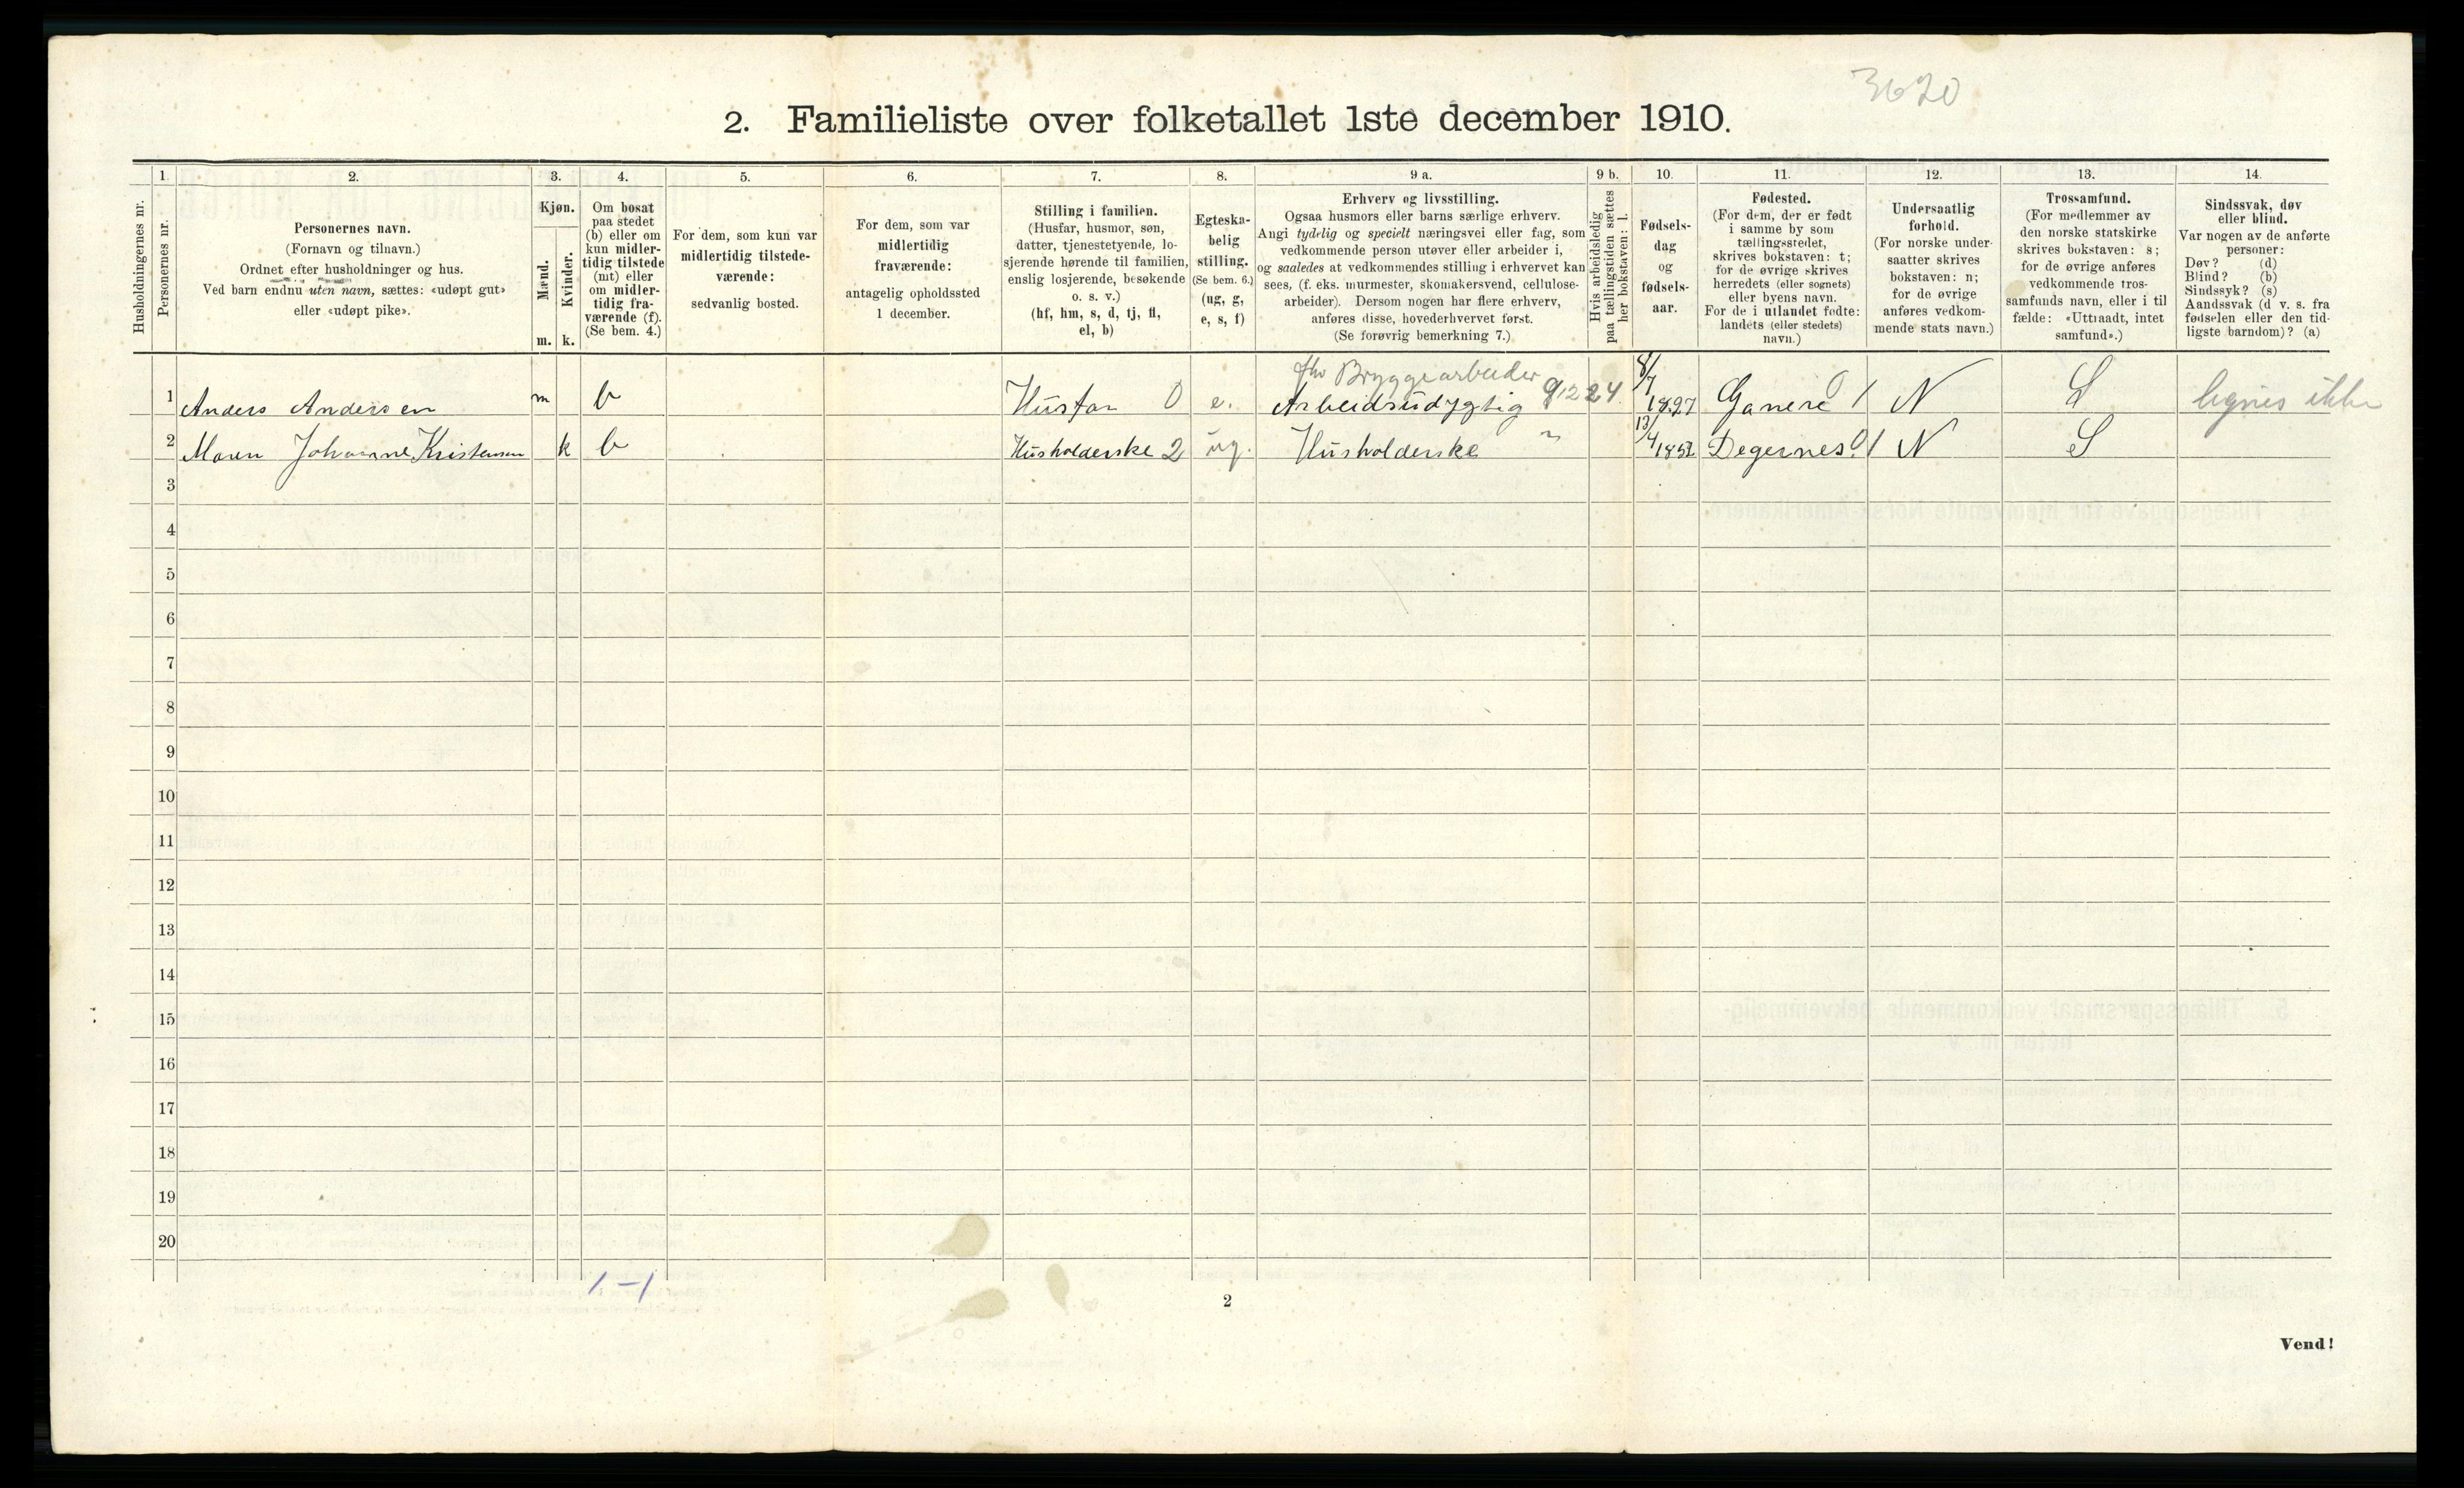 3620
2. Familieliste over folketallet 1ste december 1910.
Husholdningernes nr.
1.
Personernes nr.
2.
Personernes navn.
(Fornavn og tilnavn.)
Ordnet efter husholdninger og hus.
Ved barn endnu uten navn, sættes: «udøpt gut»
eller «udøpt pike».
3.
Kjøn.
Mænd.
Kvinder.
m. k.
4.
Om bosat
paa stedet
(b) eller om
kun midler-
tidig tilstede
(mt) eller
om midler-
tidig fra-
værende (f).
(Se bem. 4.)
5.
For dem, som kun var
midlertidig tilstede-
værende:
sedvanlig bosted.
6.
For dem, som var
midlertidig
fraværende:
antagelig opholdssted
1 december.
7.
Stilling i familien.
(Husfar, husmor, søn,
datter, tjenestetyende, lo-
sjerende hørende til familien,
enslig losjerende, besøkende
o. s. v.)
(hf, hm, s, d, tj, fl,
el, b)
8.
Egteska-
belig
stilling.
(Se bem. 6.)
(ug, g,
e, s, f)
9 a.
Erhverv og livsstilling.
Ogsaa husmors eller barns særlige erhverv.
Angi tydelig og specielt næringsvei eller fag, som
vedkommende person utøver eller arbeider i,
og saaledes at vedkommendes stilling i erhvervet kan
sees, (f. eks. murmester, skomakersvend, cellulose-
arbeider). Dersom nogen har flere erhverv,
anføres disse, hovederhvervet først.
(Se forøvrig bemerkning 7.)
9 b.
Hvis arbeidsledig
paa tællingstiden sættes
her bokstaven: l.
10.
Fødsels-
dag
og
fødsels-
aar.
11.
Fødested.
(For dem, der er født
i samme by som
tællingsstedet,
skrives bokstaven: t;
for de øvrige skrives
herredets (eller sognets)
eller byens navn.
For de i utlandet fødte:
landets (eller stedets)
navn.)
12.
Undersaatlig
forhold.
(For norske under-
saatter skrives
bokstaven: n;
for de øvrige
anføres vedkom-
mende stats navn.)
13.
Trossamfund.
(For medlemmer av
den norske statskirke
skrives bokstaven: s;
for de øvrige anføres
vedkommende tros-
samfunds navn, eller i til
fælde: «Uttraadt, intet
samfund».)
14.
Sindssvak, døv
eller blind.
Var nogen av de anførte
personer:
Døv? (d)
Blind? (b)
Sindssyk? (s)
Aandssvak (d v. s. fra
fødselen eller den tid-
ligste barndom)? (a)
fhv Bryggearbeider
1 Anders Andersen m b Husfar 0 e. Arbeidsudygtig 91224 8/7 1827 Ganere 01 N S lignes ikke
2 Maren Johanne Kristensen k b Husholderske 2 ug. Husholderske " 13/4 1852 Degernes 01 N S
3
4
5
6
7
8
9
10
11
12
13
14
15
16
17
18
19
20
1-1
2
Vend!